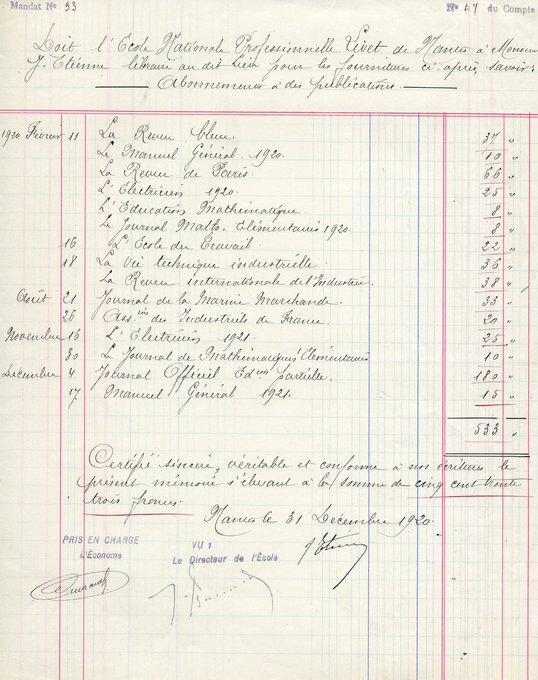 Mandat N° 93
N° 47 du Compte
Doit l'Ecole Nationale Professionnelle Livet de Nantes à Monsieur
J. Etienne libraire au dit lieu pour les fournitures ci-après, savoir:
Abonnements à des publications.
1920 Février 11 La Revue bleue. 37 "
Le Manuel Général 1920. 10 "
La Revue de Paris 66 "
L'Electricien 1920. 25 "
L'Education Mathématique 8 "
Le Journal Math. Elémentaires 1920. 8 "
16 L'Ecole du Travail 22 "
18 La vie technique industrielle. 36 "
La Revue internationale de l'Industrie. 38 "
Août 21 Journal de la Marine Marchande. 33 "
26 Ass.ion des Industriels de France. 20 "
Novembre 16 L'Electricien 1921. 25 "
30 Le Journal de Mathématiques Elémentaires 10 "
Décembre 4 Journal Officiel Ed.ion partielle. 180 "
17 Manuel Général 1921. 15 "
533 "
Certifié sincère, véritable et conforme à nos écritures le
présent mémoire s'élevant à la somme de cinq cent trente
trois francs.
Nantes le 31 Décembre 1920.
PRIS EN CHARGE
L'Économe
VU !
Le Directeur de l'École
J Etienne